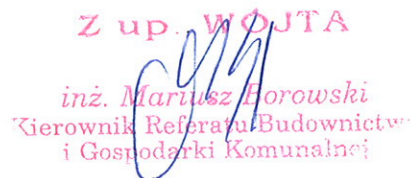 Z up. WÓJTA
inż. Mariusz Borowski
Kierownik Referatu Budownictw
i Gospodarki Komunalnej